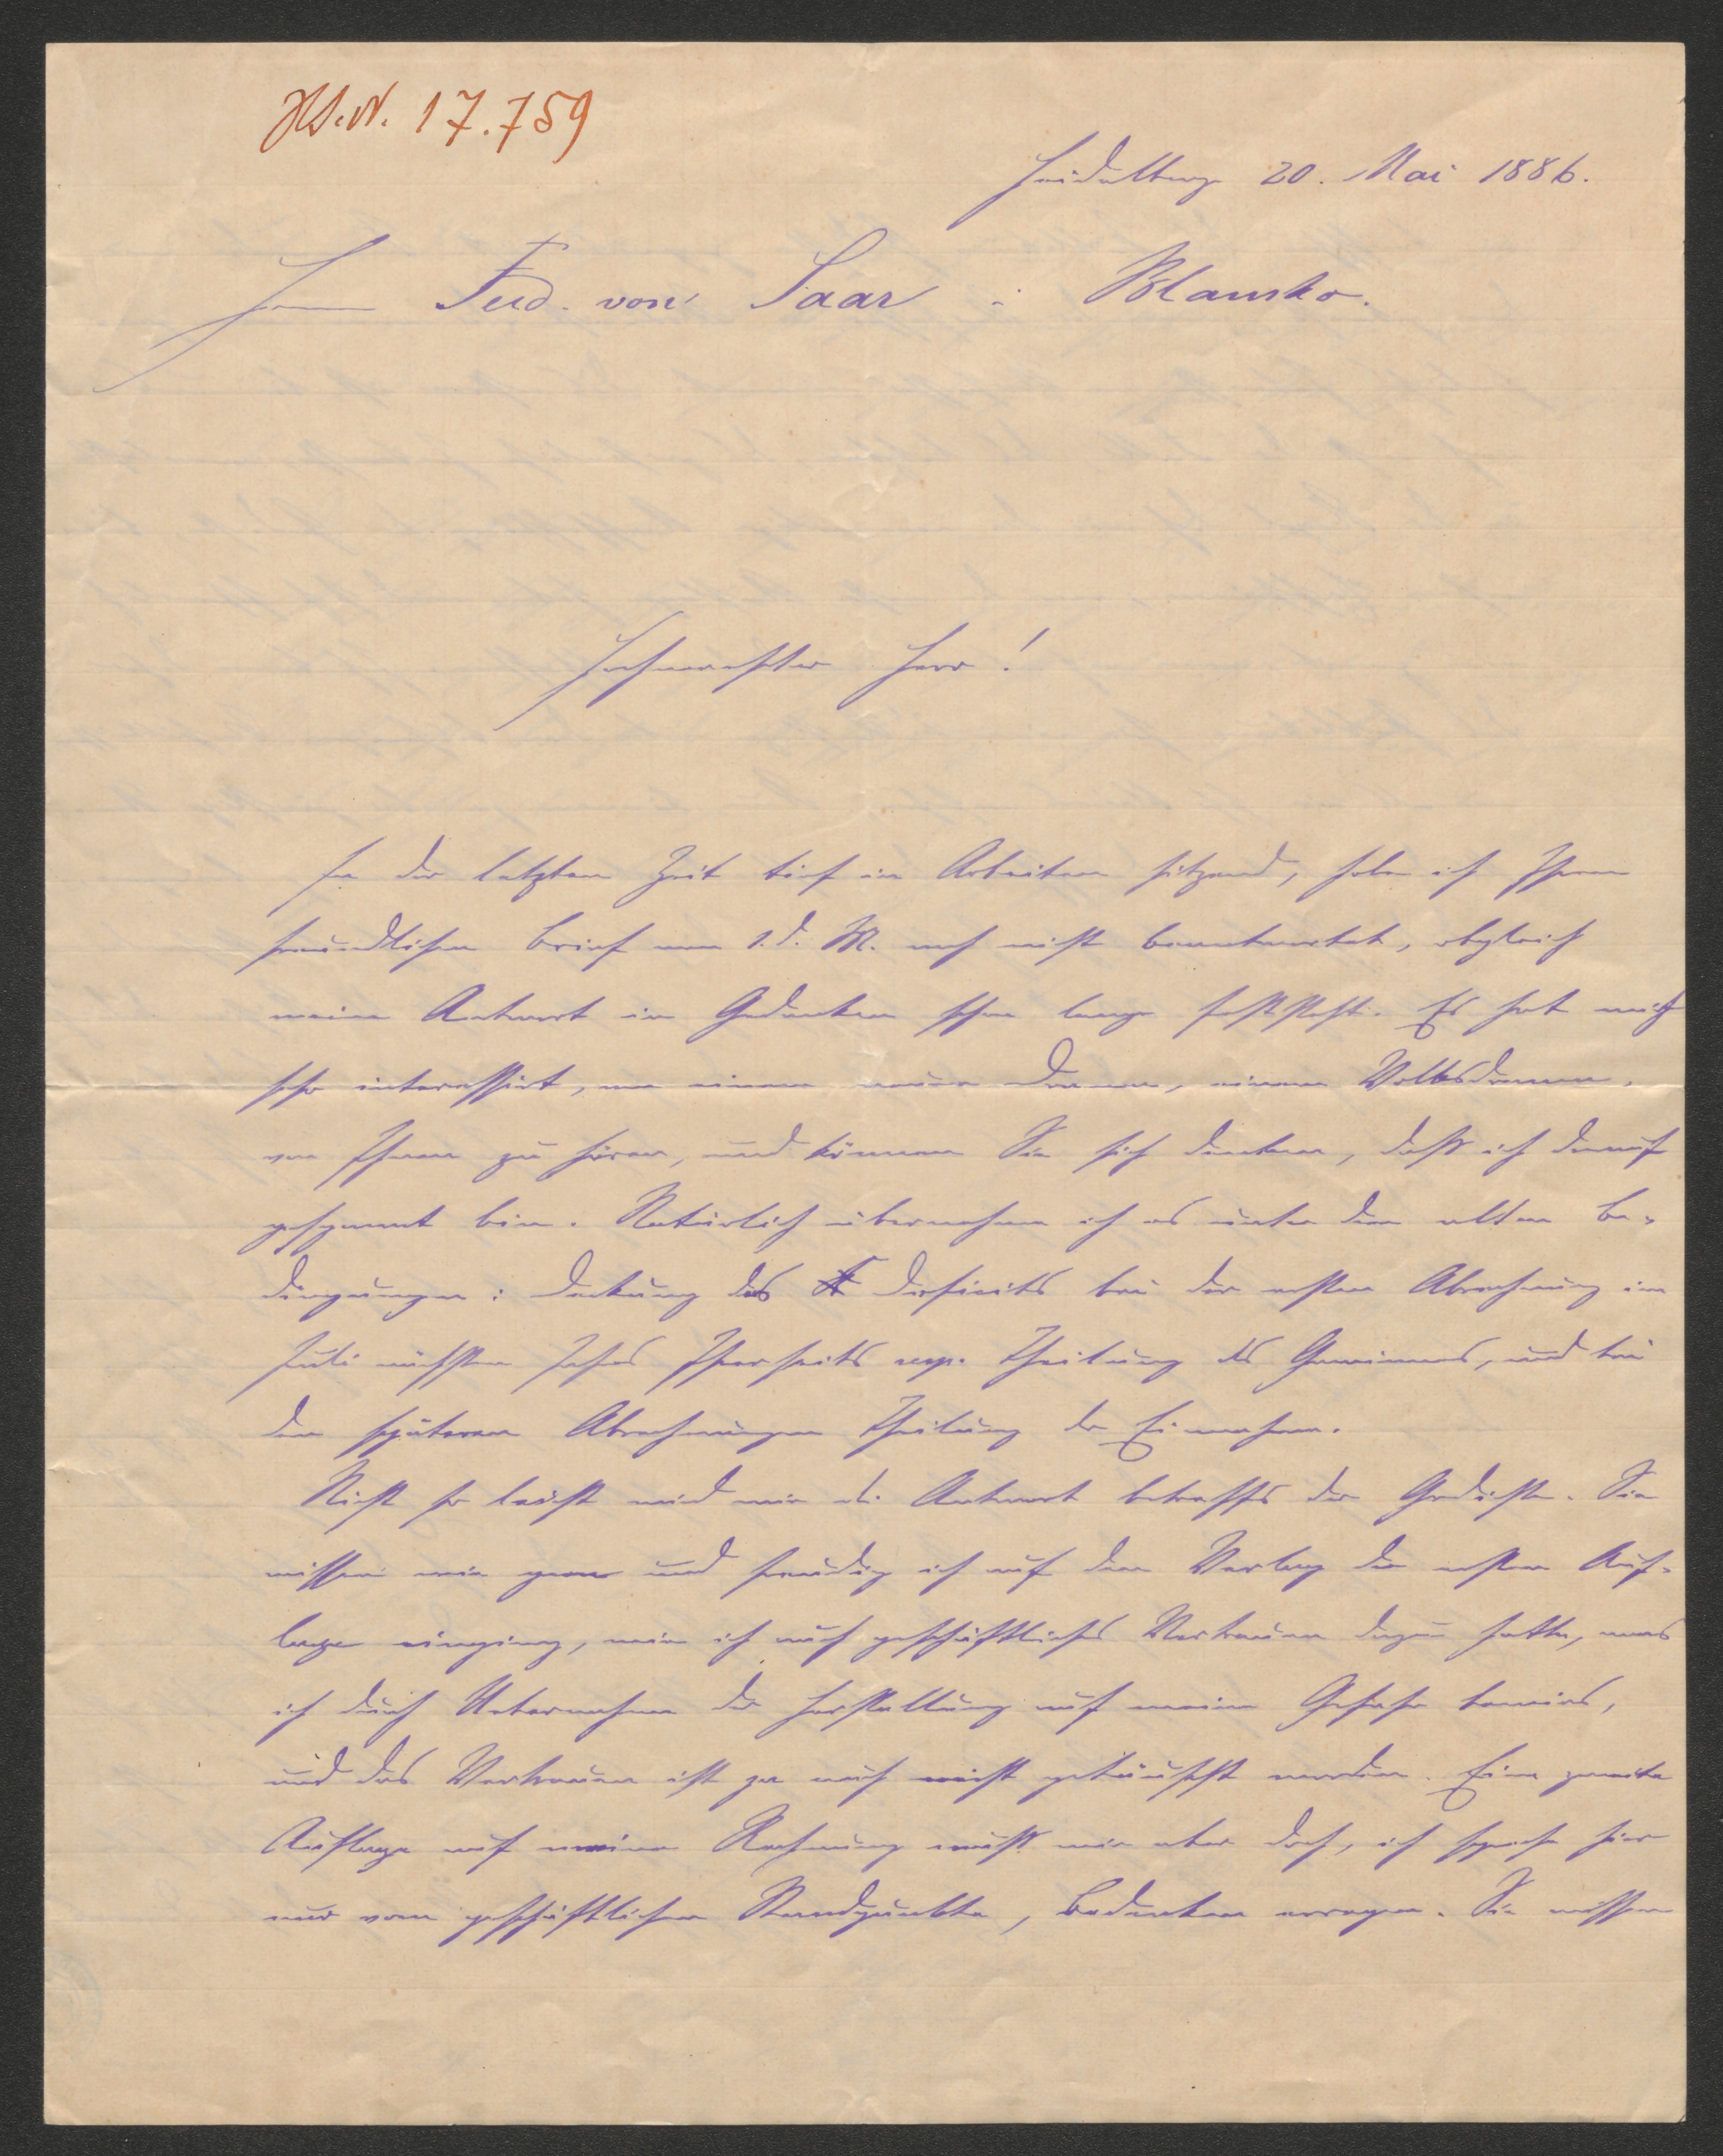 Hs.N. 17.759
Heidelberg 20. Mai 1886.
Herrn Ferd. von Saar i Blansko.
Hochverehrter Herr!
In der letzten Zeit tief in Arbeiten sitzend, habe ich Ihren
freundlichen Brief vom 1. d. M. noch nicht beantwortet, obgleich
meine Antwort in Gedanken schon lange feststeht. Es hat mich
sehr interessirt, von einem neuen Drama, einem Volksdrama,
von Ihnen zu hören, und können Sie sich denken, daß ich darauf
gespannt bin. Natürlich übernehme ich es unter den alten Be-
dingungen: Deckung des Deficits bei der ersten Abrechnung im
Juli nächsten Jahres Ihrerseits resp. Theilung des Gewinnes, und bei
den späteren Abrechnungen Theilung der Einnahmen.
Nicht so leicht wird mir die Antwort betreffs der Gedichte. Sie
wissen wie gern und freudig ich auf den Verlag der ersten Auf-
lage einging, wie ich auch geschäftliches Vertrauen dazu hatte, was
ich durch Uebernahme der Herstellung auf meine Gefahr bewies,
und das Vertrauen ist ja auch nicht getäuscht worden. Eine zweite
Auflage auf meine Rechnung muß mir aber doch, ich spreche hier
nur vom geschäftlichen Standpunkte, Bedenken erregen. Sie wissen